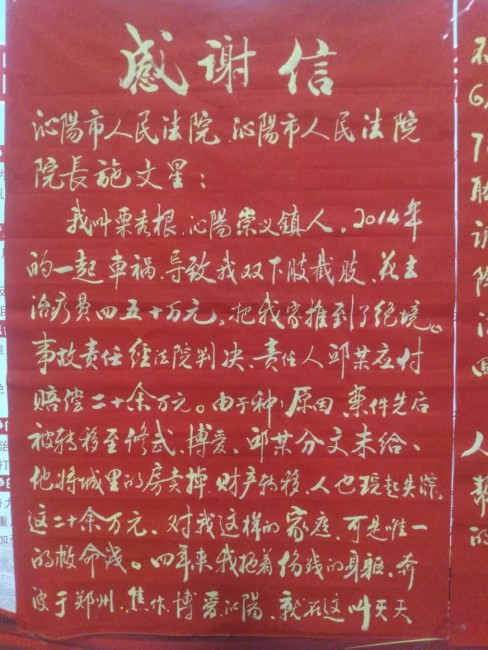 感谢信
沁陽市人民法院、沁陽市人民法院
院長施文星:
我叫栗秀根、沁陽崇义镇人。2014年
的一起車祸、导致我双下肢截肢、花去
治疗费四五十万元。把我家推到了绝境。
事故责任经法院判决、责任人邱某应付
赔偿二十余万元。由于种种原因、案件先后
被转移至修武、博爱、邱某分文未给、
他将城里的房卖掉、财产转移、人也玩起失踪。
这二十余万元、对我这样的家庭、可是唯一
的救命钱。四年来我拖着伤残的身躯、奔
波于郑州、焦作、博爱、沁陽、就在这叫天天